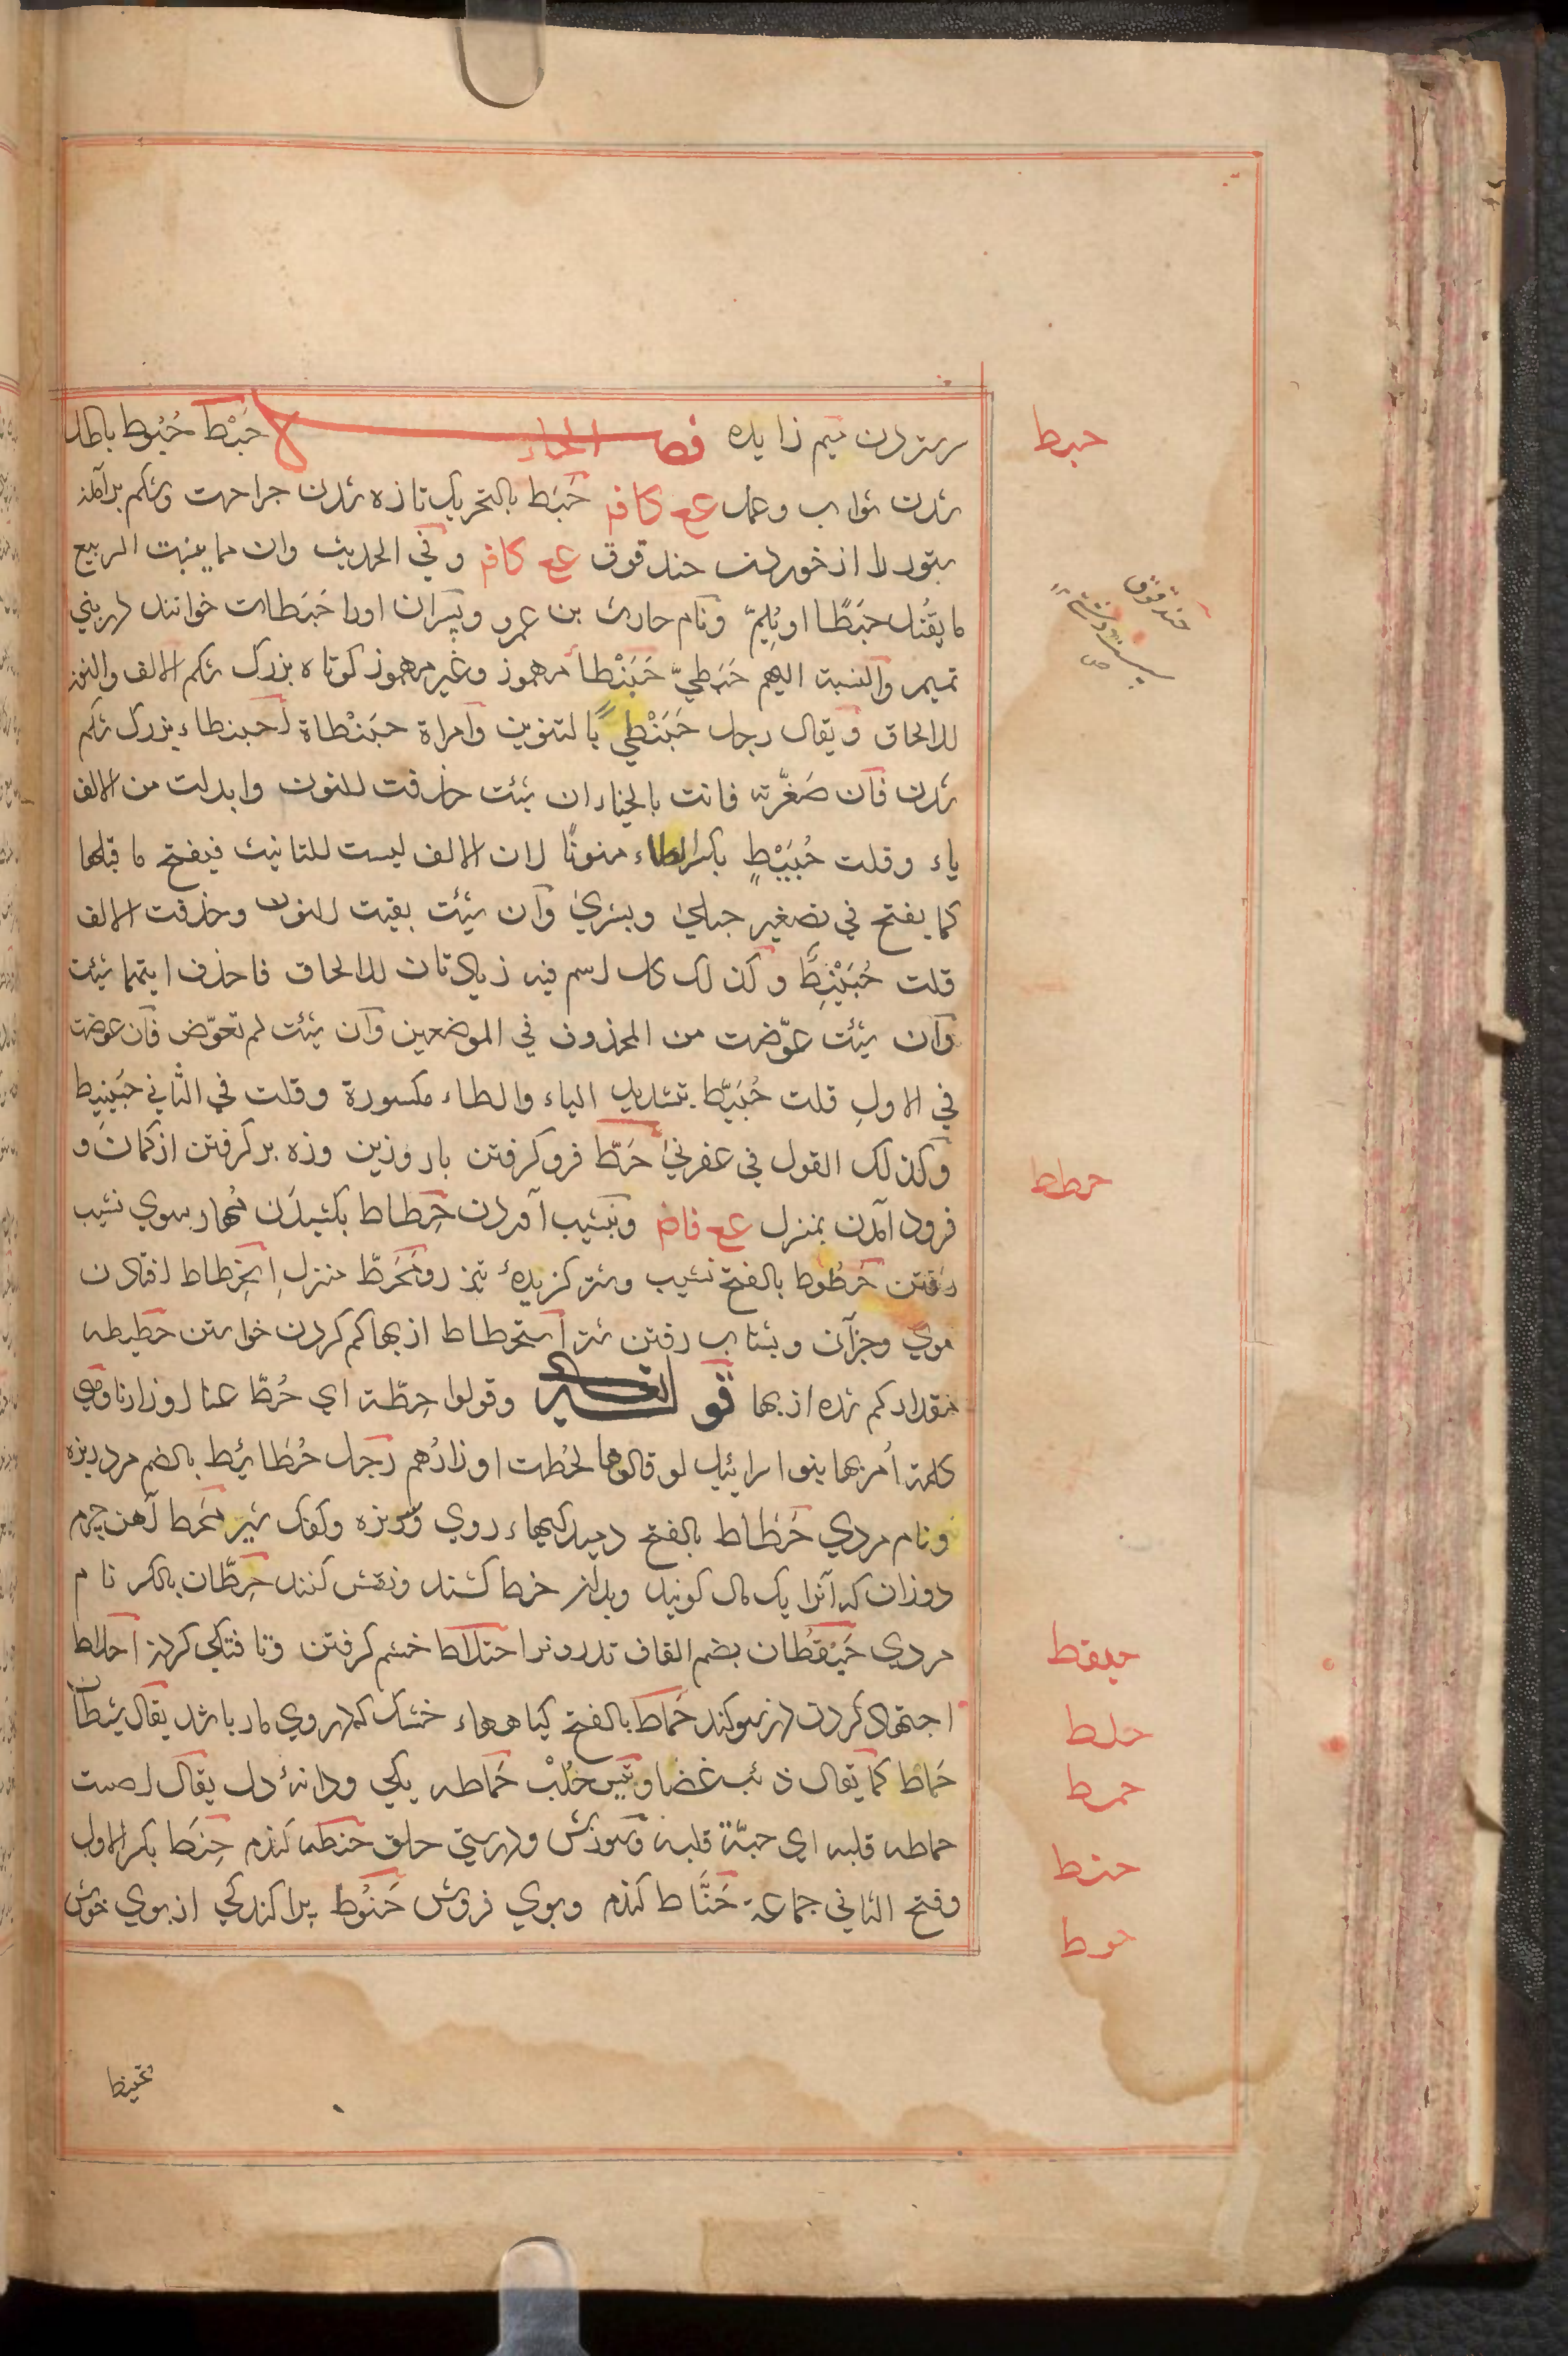 ستردن میم زایده فصل الحاء حَبْط حُبُوط باطل
شدن ثواب وعمل ع ع کا فم حَبَط بالتحریک تازه شدن جراحت وشکم برآمدن
ستور را از خوردن حندقوق ع ع کا فم وفي الحدیث وان مما ینبت الربیع
ما یقتل حبَطًا او یُلِمّ ونام حارث بن عمرو وپسران اورا حَبَطات خوانند از بني
تمیم والنسبة الیهم حَبَطيّ حَبَنْطأ مهموز وغیر مهموز کوتاه بزرک شکم الالف والنون
للالحاق ویقال رجل حَبَنْطيً بالتنوین وامراة حبَنْطاة احبنطاء بزرک شکم
شدن فان صَغّرته فانت بالخیار ان شئت حذفت للنون وابدلت من الالف
یاء وقلت حُبَیْطٍ بکسر الطاء منونًا لان الالف لیست للتانیث فیفتح ما قبلها
کما یفتح في تصغیر حبلي وبشري وان شئت بقیت للنون وحذفت الالف
قلت حُبَیْنِطٌ وکذلک کل اسم فیه زیادتان للالحاق فاحذف ایتهما شئت
وان شئت عوّضت من المحذوف في الموضعین وان شئت لم تعوّض فان عوضت
في الاول قلت حُبَیّط بتشدید الیاء والطاء مکسورة وقلت في الثاني حبَینیط
وکذلک القول في عفرني حَطّ فرو کرفتن بار وزین وزه بر کرفتن از کمان و
فرود آمدن بمنزل ع ع فا ضم وبنشیب آوردن حِطاط بکشیدن مهار سوي نشیب
رفتن حَطُوط بالفتح نشیب وشتر کزیدهٔ تیز رو مَحَطّ منزل اِنحِطاط افتادن
موي وجز آن وبشتاب رفتن شتر استحطاط از بها کم کردن خواستن حطیطه
مقدار کم شده از بها قو التفسیر وقولوا حِطّة اي حُطّ عنا اوزارنا وهي
کلمة اُمر بها بنو اسرائیل لو قالوها لحُطت اوزارُهم رجل حُطائِط بالضم مرد ریزه
ونام مردي حَطاط بالفتح دمیدکیهاء روي وریزه وکفک شیر مِحَط آهن چرم
دوزان که آنرا یک مال کویند وبدان خط کشند ونقش کنند حِطّان بالکسر نام
مردي حَیْقُطان بضم القاف تذرو نر احتلاط خشم کرفتن وتافتکي کردن احلاط
اجتهاد کردن در سوکند حَماط بالفتح کیاهها خشک که در وي مار باشد یقال شیطان
حَماط کما یقال ذئب غضا وتیس حُلّب حَماطه یکي ودانهٔ دل یقال اصبت
حماطه قلبه اي حبّة قلبه وسوزش ودرشتي حلق حنطه کندم حِنَط بکسر الاول
وفتح الثاني جماعة حَنَّاط کندم وبوي فروش حَنُوط پراکندکي از بوي خوش
حبط
حندقوق
حطط
حیقط
حلط
حمط
حنط
حوط